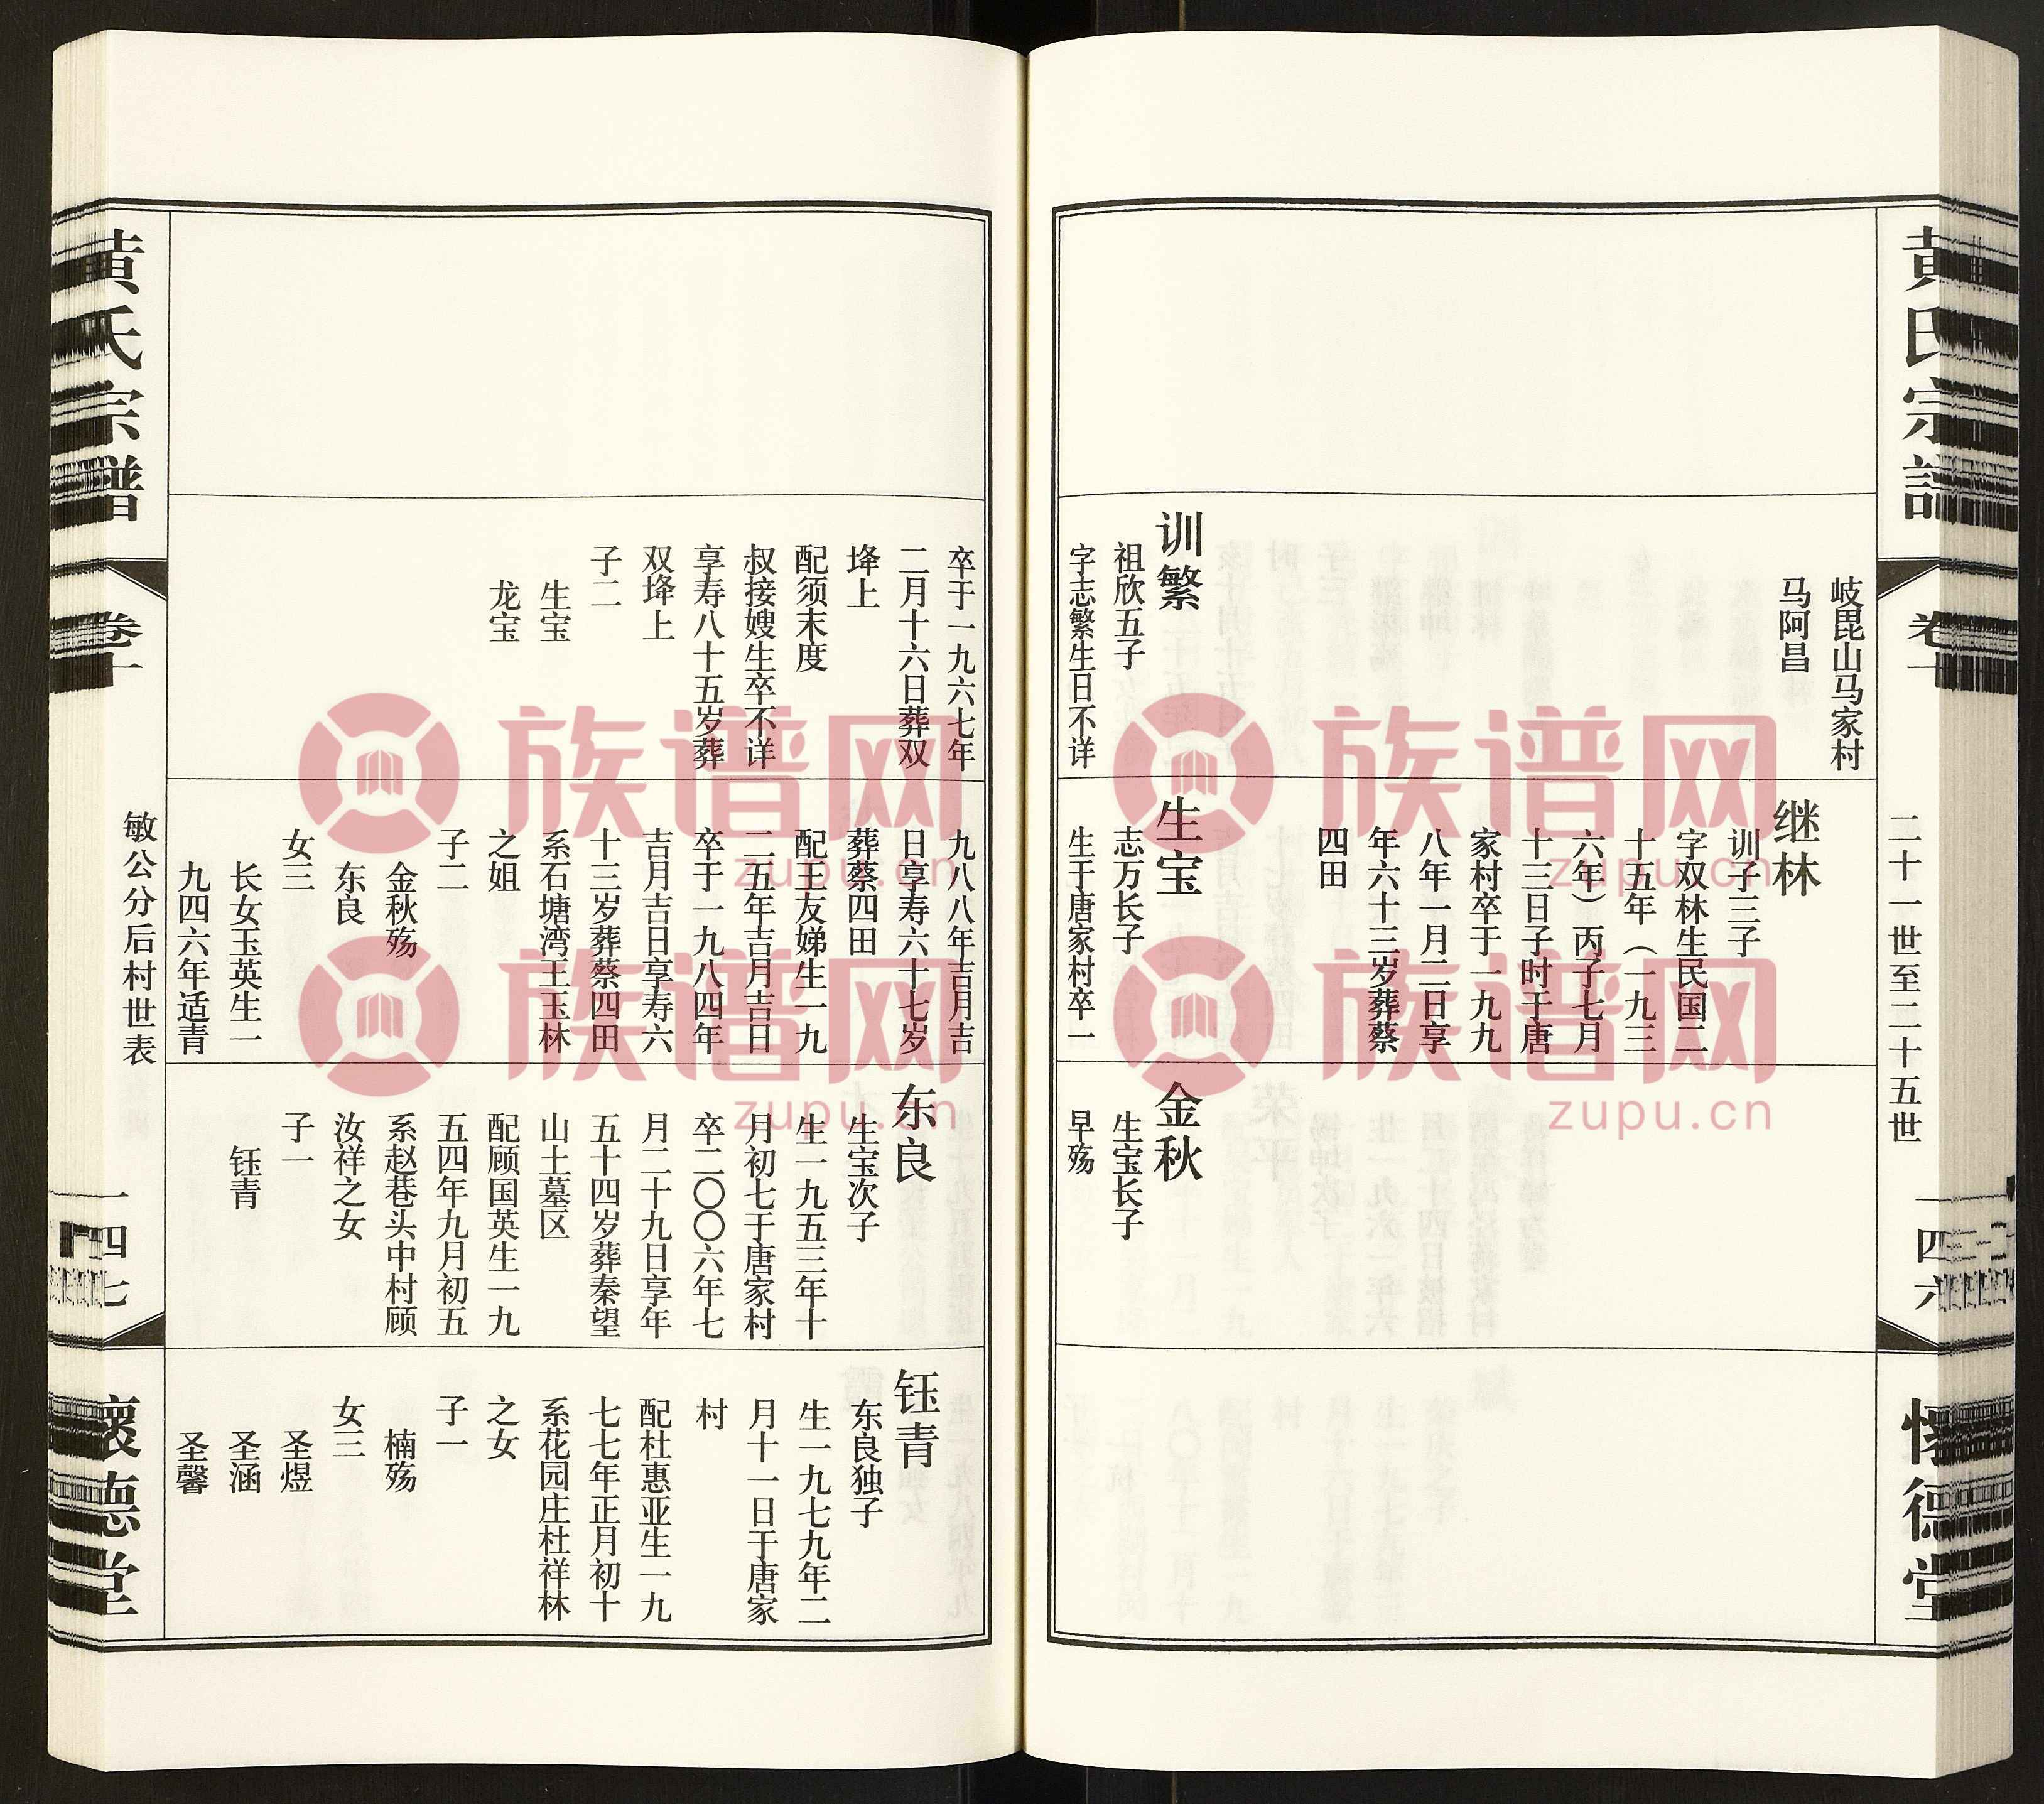 黄氏宗譜
卷十
二十一世至二十五世
一四六
懷德堂
岐毘山马家村
马阿昌
训繁
祖欣五子
字志繁生日不详
继林
训子三子
字双林生民国二
十五年（一九三
六年）丙子七月
十三日子时于唐
家村卒于一九九
八年一月二日享
年六十三岁葬蔡
四田
生宝
志万长子
生于唐家村卒一
金秋
生宝长子
早殇
卒于一九六七年
二月十六日葬双
垰上
配须末度
叔接嫂生卒不详
享寿八十五岁葬
双垰上
子二
生宝
龙宝
九八八年吉月吉
日享寿六十七岁
葬蔡四田
配王友娣生一九
二五年吉月吉日
卒于一九八四年
吉月吉日享寿六
十三岁葬蔡四田
系石塘湾王玉林
之姐
子二
金秋殇
东良
女三
长女玉英生一
九四六年适青
东良
生宝次子
生一九五三年十
月初七于唐家村
卒二〇〇六年七
月二十九日享年
五十四岁葬秦望
山土墓区
配顾国英生一九
五四年九月初五
系赵巷头中村顾
汝祥之女
子一
钰青
钰青
东良独子
生一九七九年二
月十一日于唐家
村
配杜惠亚生一九
七七年正月初十
系花园庄杜祥林
之女
子一
楠殇
女三
圣煜
圣涵
圣馨
黄氏宗譜
卷十
敏公分后村世表
一四七
懷德堂
族谱网
zupu.cn
族谱网
zupu.cn
族谱网
zupu.cn
族谱网
zupu.cn